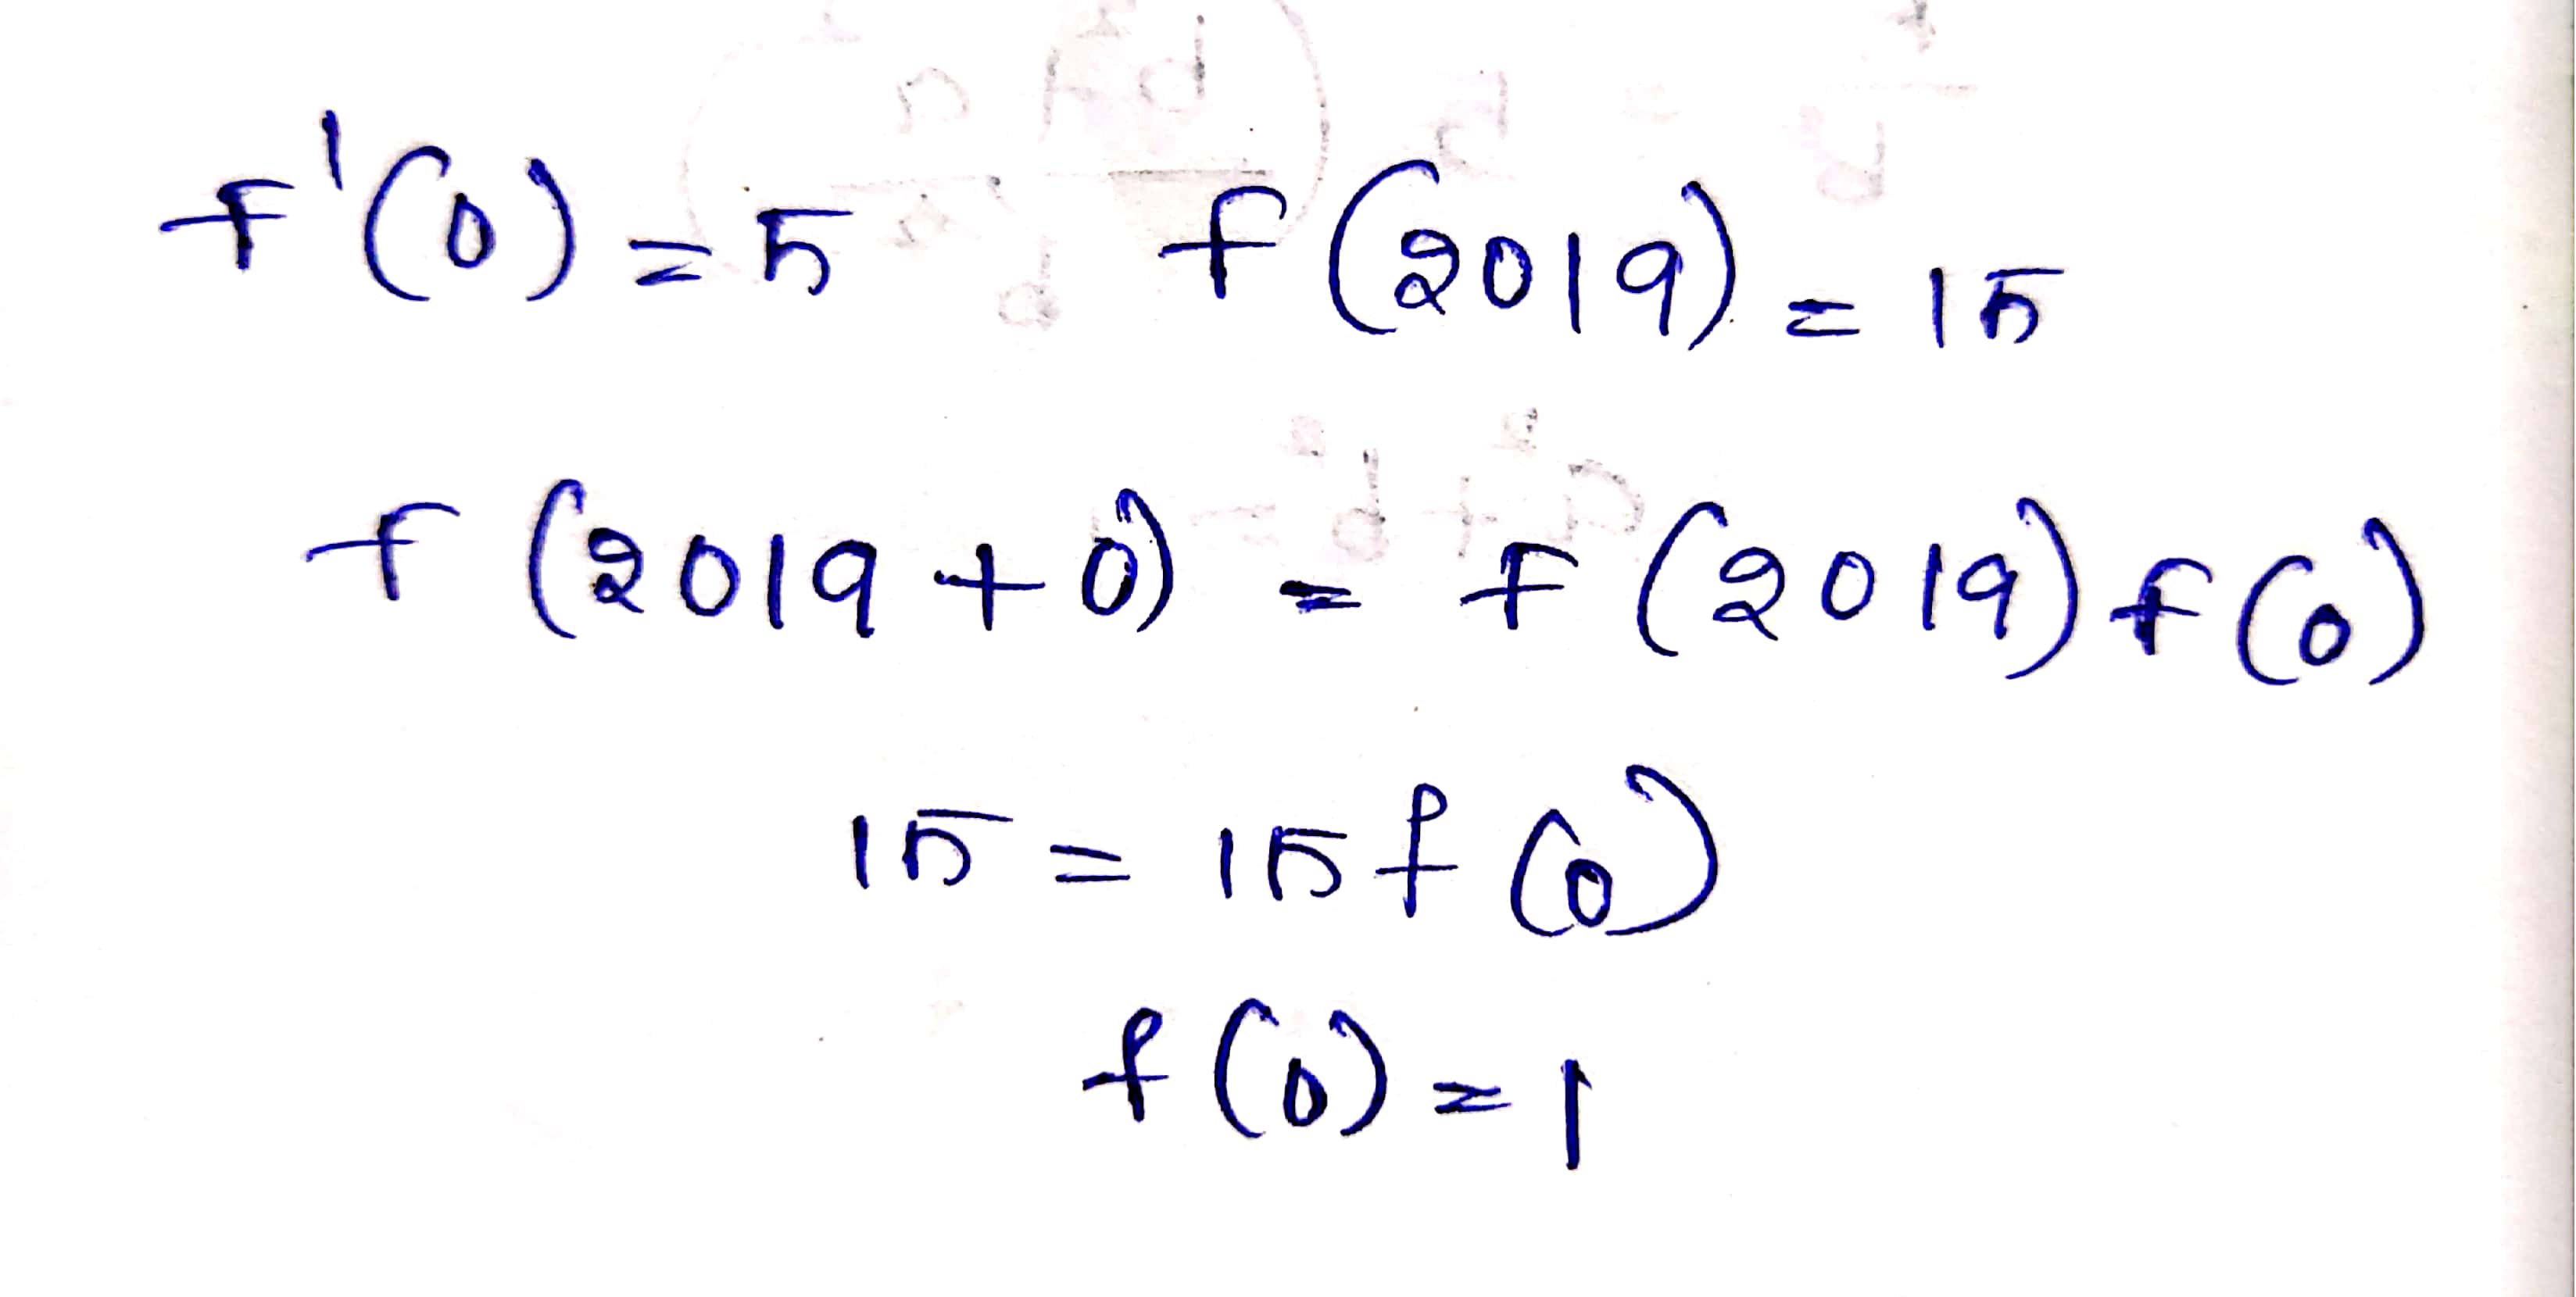 f'(0) = 5 f(2019) = 15
f(2019+0) = f(2019) f(0)
15 = 15 f(0)
f(0) = 1